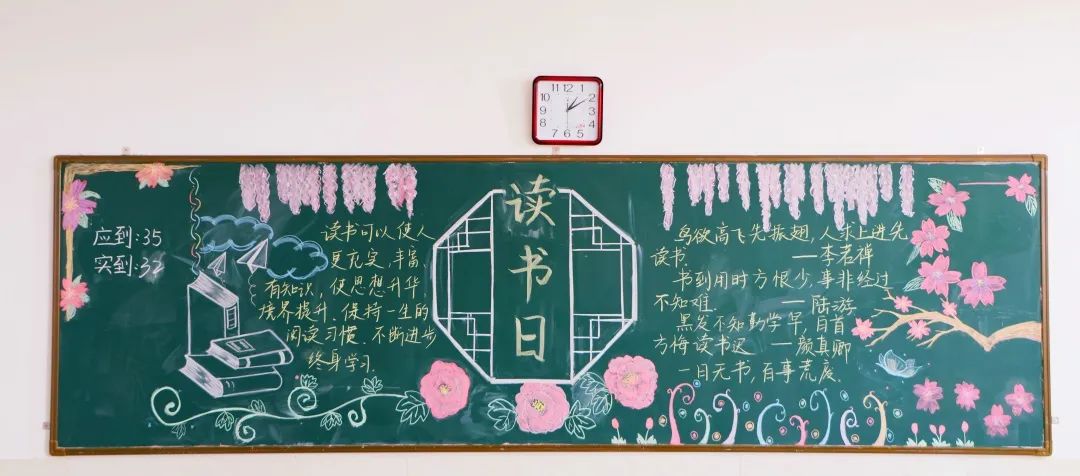 12
11
1
10
2
9
3
8
4
7
6
5
应到:35
实到:32
读书可以使人
更充实,丰富,
有知识,使思想升华,
境界提升.保持一生的
阅读习惯.不断进步
终身学习.
读书日
鸟欲高飞先振翅,人求上进先
读书.
—李若禅
书到用时方恨少,事非经过
不知难.
—陆游
黑发不知勤学早,白首
方悔读书迟
—颜真卿
一日无书,百事荒废.